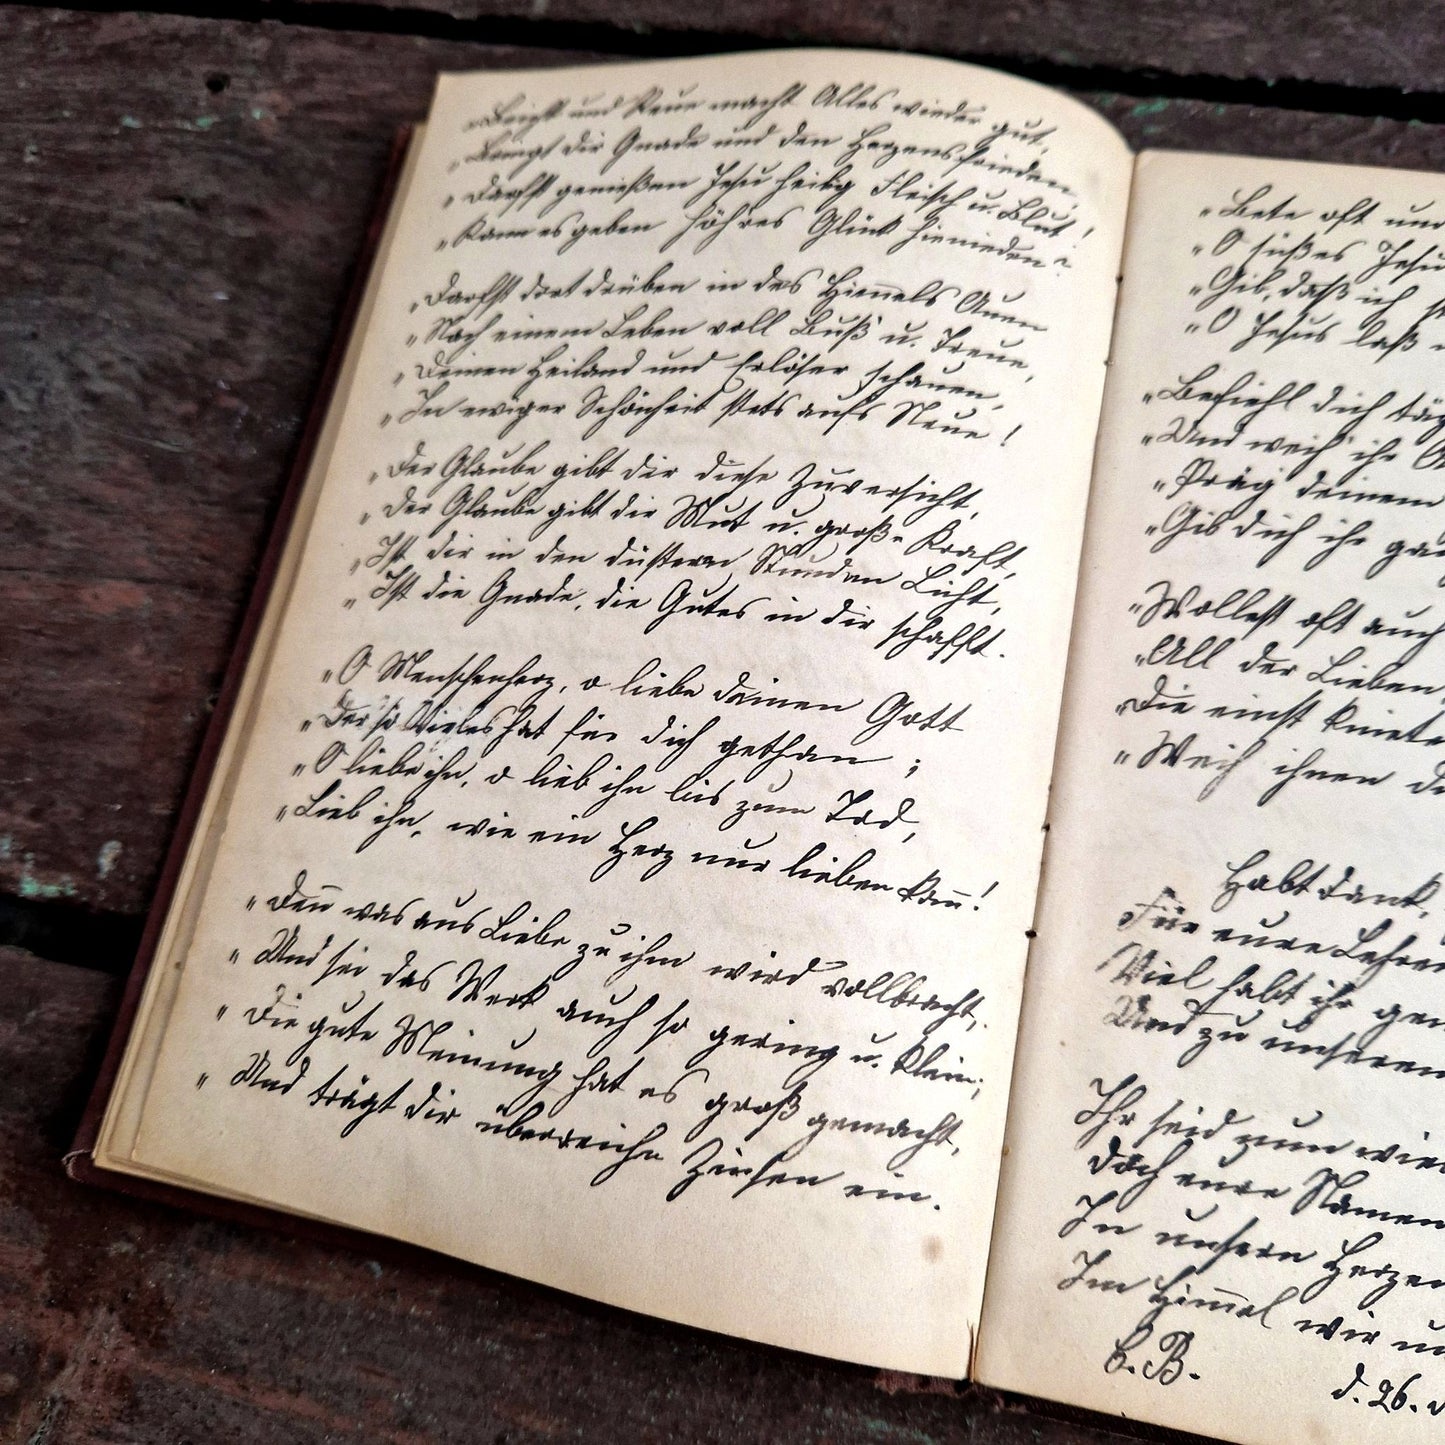 „Beicht und Reue macht Alles wieder gut,
„Bringt dir Gnade und den Herzensfrieden,
„Darfst genießen Jesu heilig Fleisch u. Blut!
„Kann es geben höh'res Glück hienieden?
„Darfst dort drüben in des Him̄els Auen
„Nach einem Leben voll Buß' u. Treue,
„Deinen Heiland und Erlöser schauen,
„In ewiger Schönheit stets aufs Neue!
„Der Glaube gibt dir diese Zuversicht,
„Der Glaube gibt dir Mut u. große Kraft,
„Ist dir in den düstern Stunden Licht,
„Ist die Gnade, die Gutes in dir schafft.
„O Menschenherz, o liebe deinen Gott
„Der so Vieles hat für dich gethan;
„O liebe ihn, o lieb ihn bis zum Tod,
„Lieb ihn, wie ein Herz nur lieben kan̄!
„Den̄ was aus Liebe zu ihm wird vollbracht,
„Und sei das Werk auch so gering u. klein;
„Die gute Meinung hat es groß gemacht,
„Und trägt dir überreiche Zinsen ein.
„Bete oft und
„O süßes Jesu
„Gib, daß ich
„O Jesus laß
„Befiehl dich
„Und weih' ihr
„Präg deinem
„Gib dich ihr
„Wollest oft auch
„All der Lieben
„Die einst
„Weih ihnen
Habt Dank,
Für eure Lehren
Viel habt ihr
Und zu unserem
Ihr seid nun
Doch eure Namen
In unsern Herzen
Im Him̄el wir
B.
d. 26.